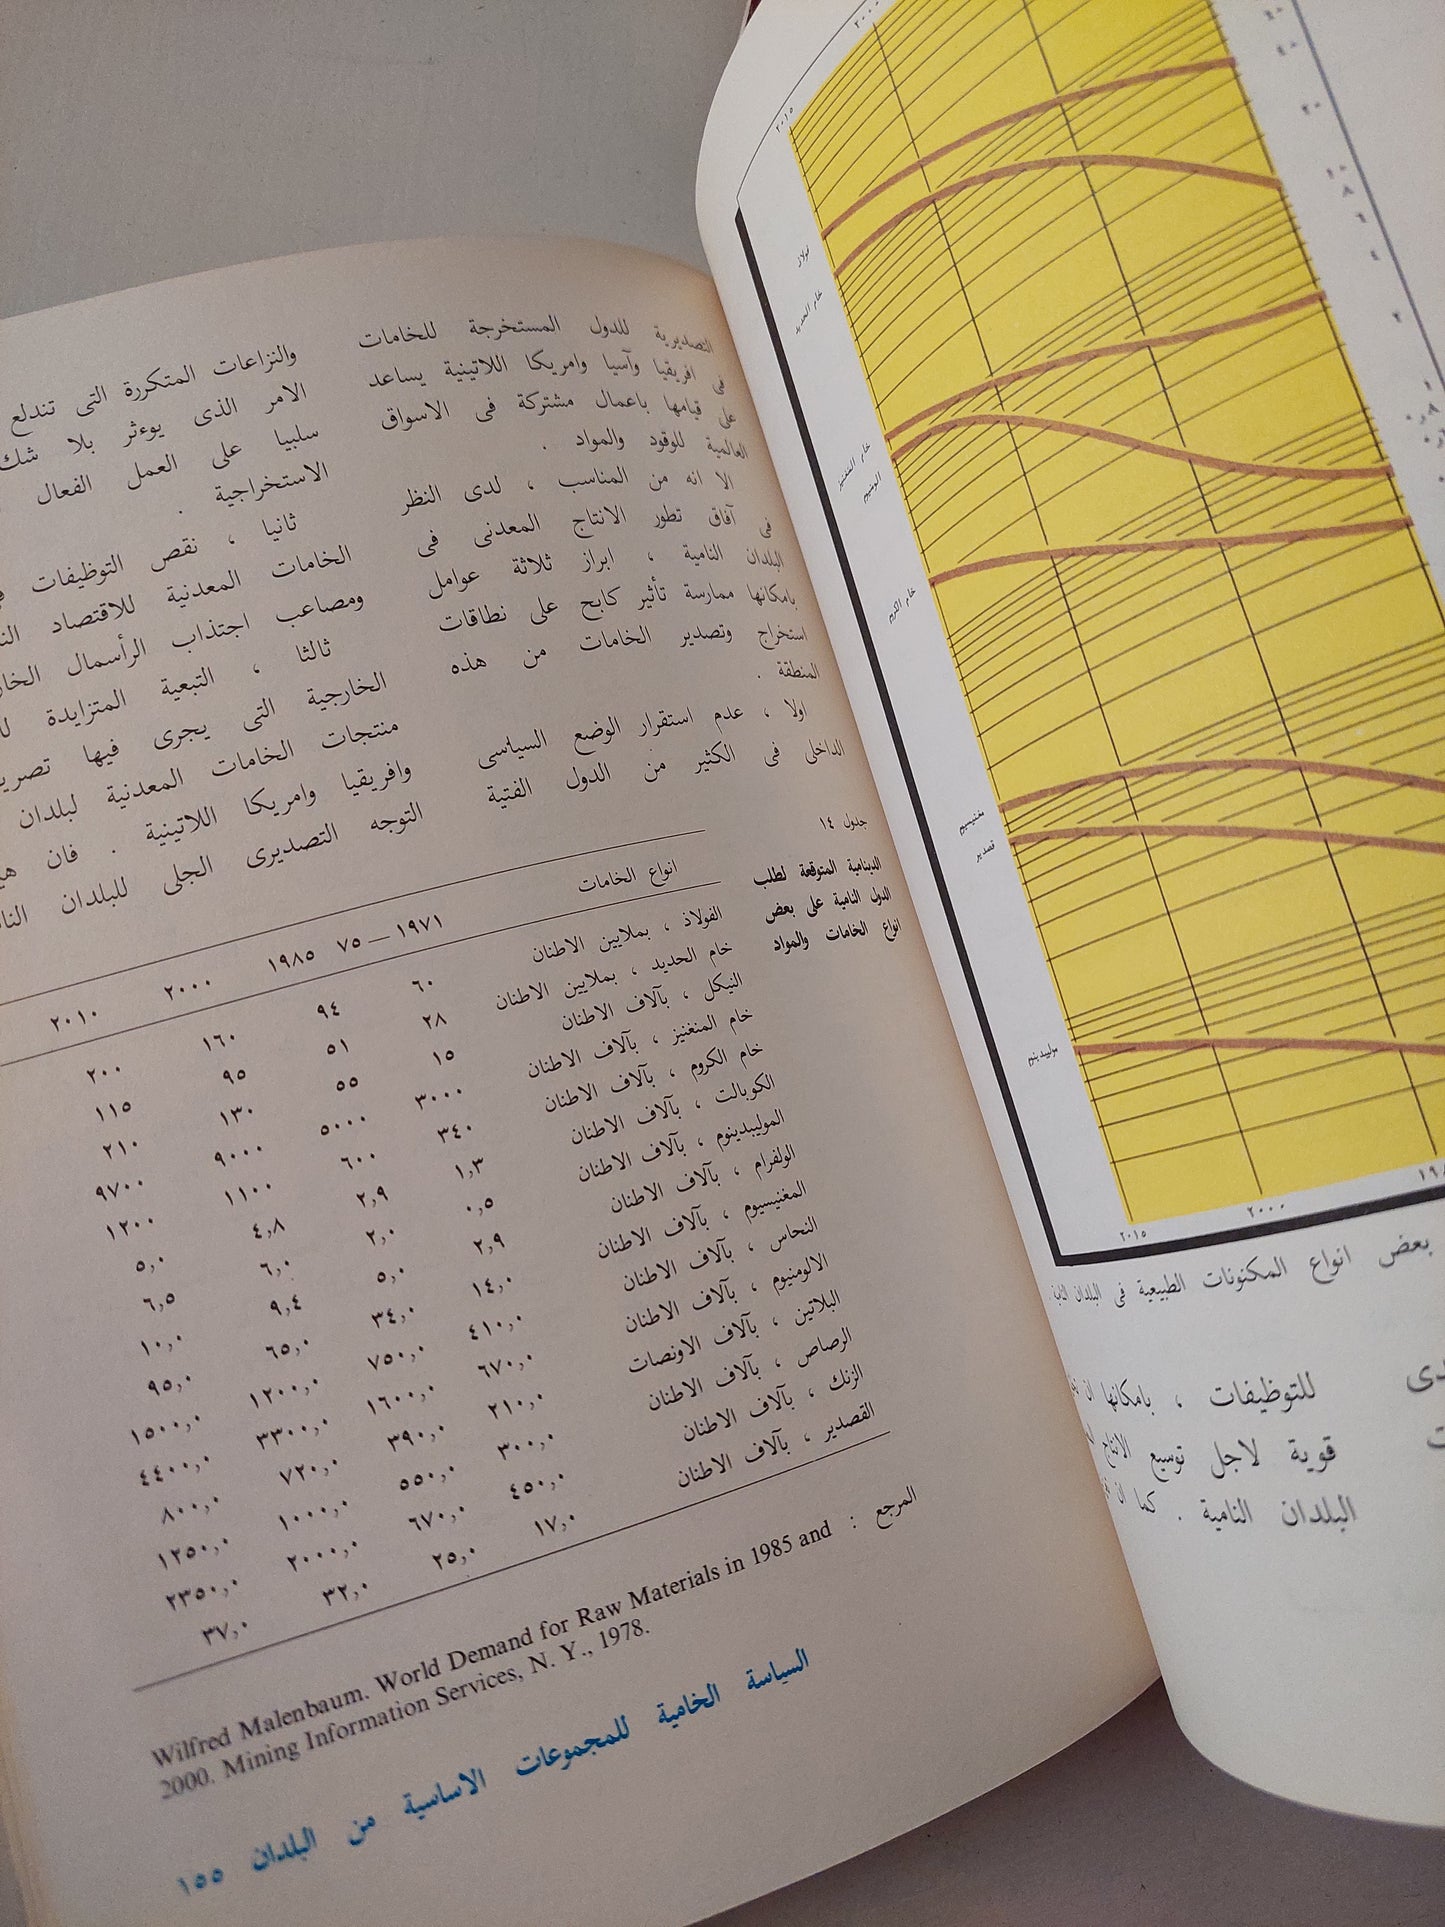 التصديرية للدول المستخرجة للخامات
فى افريقيا وآسيا وامريكا اللاتينية يساعد
على قيامها باعمال مشتركة فى الاسواق
العالمية للوقود والمواد .
الا انه من المناسب ، لدى النظر
فى آفاق تطور الانتاج المعدنى فى
البلدان النامية ، ابراز ثلاثة عوامل
بامكانها ممارسة تأثير كابح على نطاقات
استخراج وتصدير الخامات من هذه
المنطقة .
اولا ، عدم استقرار الوضع السياسى
الداخلى فى الكثير من الدول الفتية
والنزاعات المتكررة التى تندلع
الامر الذى يوءثر بلا شك
سلبيا على العمل الفعال
الاستخراجية .
ثانيا ، نقص التوظيفات
الخامات المعدنية للاقتصاد
ومصاعب اجتذاب الرأسمال
ثالثا ، التبعية المتزايدة
الخارجية التى يجرى فيها
منتجات الخامات المعدنية لبلدان
وافريقيا وامريكا اللاتينية . فان
التوجه التصديرى الجلى للبلدان
جدول ١٤
الدينامية المتوقعة لطلب
الدول النامية على بعض
انواع الخامات والمواد
انواع الخامات ١٩٧١ — ٧٥ ١٩٨٥ ٢٠٠٠ ٢٠١٠
الفولاذ ، بملايين الاطنان ٦٠ ٩٤ ١٦٠ ٢٠٠
خام الحديد ، بملايين الاطنان ٢٨ ٥١ ٩٥ ١١٥
النيكل ، بآلاف الاطنان ١٥ ٥٥ ١٣٠ ٢١٠
خام المنغنيز ، بآلاف الاطنان ٣٠٠٠ ٥٠٠٠ ٩٠٠٠ ٩٧٠٠
خام الكروم ، بآلاف الاطنان ٣٤٠ ٦٠٠ ١١٠٠ ١٢٠٠
الكوبالت ، بآلاف الاطنان ١,٣ ٢,٩ ٤,٨ ٥,٠
الموليبدينوم ، بآلاف الاطنان ٠,٥ ٢,٠ ٦,٠ ٦,٥
الولفرام ، بآلاف الاطنان ٢,٩ ٥,٠ ٩,٤ ١٠,٠
المغنيسيوم ، بآلاف الاطنان ١٤,٠ ٣٤,٠ ٦٥,٠ ٩٥,٠
النحاس ، بآلاف الاطنان ٤١٠,٠ ٧٥٠,٠ ١٢٠٠,٠ ١٥٠٠,٠
الالومنيوم ، بآلاف الاطنان ٦٧٠,٠ ١٦٠٠,٠ ٣٣٠٠,٠ ٤٤٠٠,٠
البلاتين ، بآلاف الاونصات ٢١٠,٠ ٣٩٠,٠ ٧٢٠,٠ ٨٠٠,٠
الرصاص ، بآلاف الاطنان ٣٠٠,٠ ٥٥٠,٠ ١٠٠٠,٠ ١٢٥٠,٠
الزنك ، بآلاف الاطنان ٤٥٠,٠ ٦٧٠,٠ ٢٠٠٠,٠ ٢٣٥٠,٠
القصدير ، بآلاف الاطنان ١٧,٠ ٢٥,٠ ٣٢,٠ ٣٧,٠
المرجع :
Wilfred Malenbaum. World Demand for Raw Materials in 1985 and
2000. Mining Information Services, N. Y., 1978.
السياسة الخامية للمجموعات الاساسية من البلدان ١٥٥
٢٠٠٠
٢٠١٥
فولاذ
خام الحديد
خام المنغنيز
الومنيوم
خام الكروم
مغنيسيوم
قصدير
موليبدينوم
٢٠١٥ ٢٠٠٠
بعض انواع المكنونات الطبيعية فى البلدان
للتوظيفات ، بامكانها ان
قوية لاجل توسيع الانتاج
البلدان النامية . كما ان